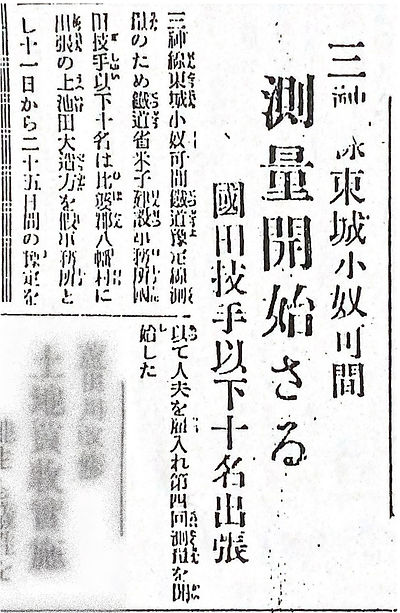 三神線東城小奴可間
測量開始さる
國田技手以下十名出張
三神線東城小奴可間鐵道豫定線測
量のため鐵道省米子建設事務所國
田技手以下十名は比婆郡八幡村に
出張の上池田大造方を假事務所と
し十一日から二十五日間の豫定を
以て人夫を雇入れ第四回測量を開
始した